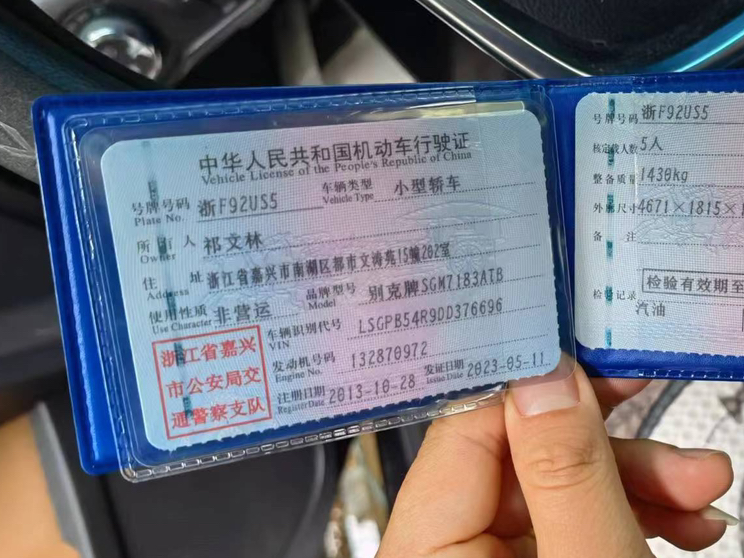 中华人民共和国机动车行驶证
Vehicle License of the People's Republic of China
号牌号码 浙F92US5 车辆类型 小型轿车
Plate No. Vehicle Type
所有人 祁文林
Owner
住址 浙江省嘉兴市南湖区都市文涛苑15幢202室
Address
使用性质 非营运 品牌型号 别克牌SGM7183ATB
Use Character Model
浙江省嘉兴
市公安局交
通警察支队
车辆识别代号 LSGPB54R9DD376696
VIN
发动机号码 132870972
Engine No.
注册日期 2013-10-28 发证日期 2023-05-11
Register Date Issue Date
号牌号码 浙F92US5
核定载人数 5人
整备质量 1430kg
外廓尺寸 4671×1815×1
备注
检验有效期至
检验记录
汽油